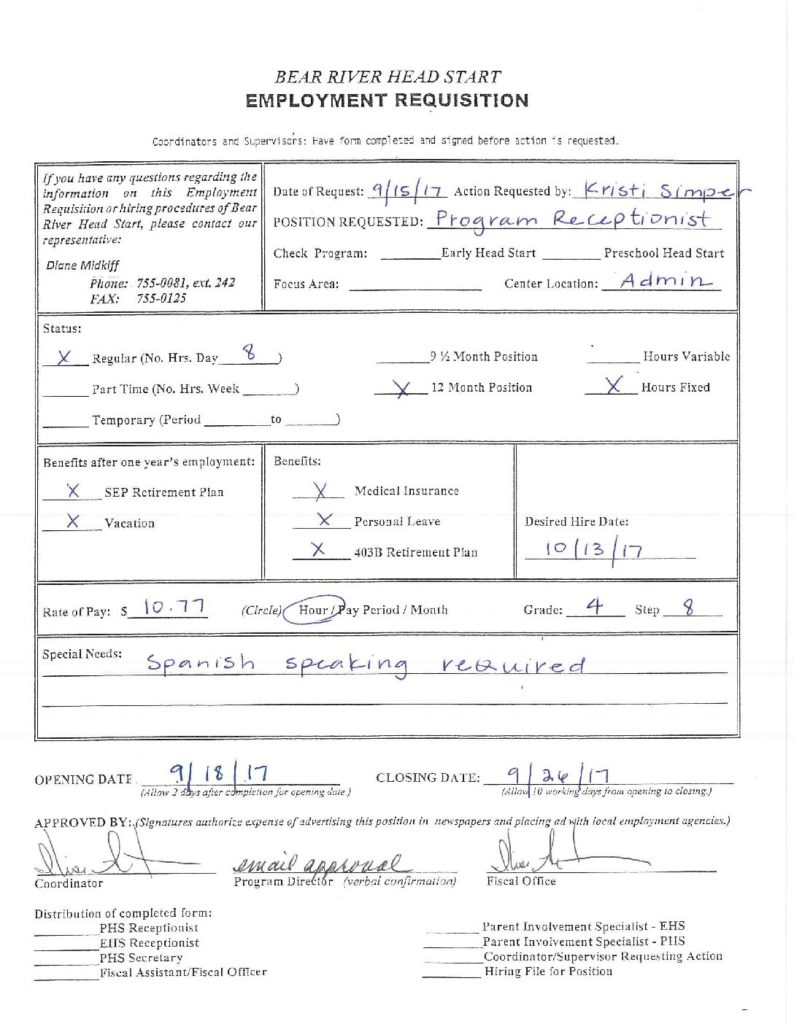 BEAR RIVER HEAD START
EMPLOYMENT REQUISITION
Coordinators and Supervisors: Have form completed and signed before action is requested.
If you have any questions regarding the
information on this Employment
Requisition or hiring procedures of Bear
River Head Start, please contact our
representative:
Diane Midkiff
Phone: 755-0081, ext. 242
FAX: 755-0125
Date of Request: 9/15/17 Action Requested by: Kristi Simper
POSITION REQUESTED: Program Receptionist
Check Program: ______Early Head Start ______ Preschool Head Start
Focus Area: ______ Center Location: Admin
Status:
X Regular (No. Hrs. Day 8 ) ______9 ½ Month Position ______ Hours Variable
______ Part Time (No. Hrs. Week ______) X 12 Month Position X Hours Fixed
______ Temporary (Period ______to ______)
Benefits after one year's employment:
X SEP Retirement Plan
X Vacation
Benefits:
X Medical Insurance
X Personal Leave
X 403B Retirement Plan
Desired Hire Date:
10/13/17
Rate of Pay: $ 10.77 (Circle) Hour / Pay Period / Month Grade: 4 Step 8
Special Needs: Spanish speaking required
OPENING DATE 9/18/17 CLOSING DATE: 9/26/17
(Allow 2 days after completion for opening date.) (Allow 10 working days from opening to closing.)
APPROVED BY: (Signatures authorize expense of advertising this position in newspapers and placing ad with local employment agencies.)
email approval
Coordinator Program Director (verbal confirmation) Fiscal Office
Distribution of completed form:
______PHS Receptionist ______Parent Involvement Specialist - EHS
______EHS Receptionist ______Parent Involvement Specialist - PHS
______PHS Secretary ______Coordinator/Supervisor Requesting Action
______Fiscal Assistant/Fiscal Officer ______Hiring File for Position